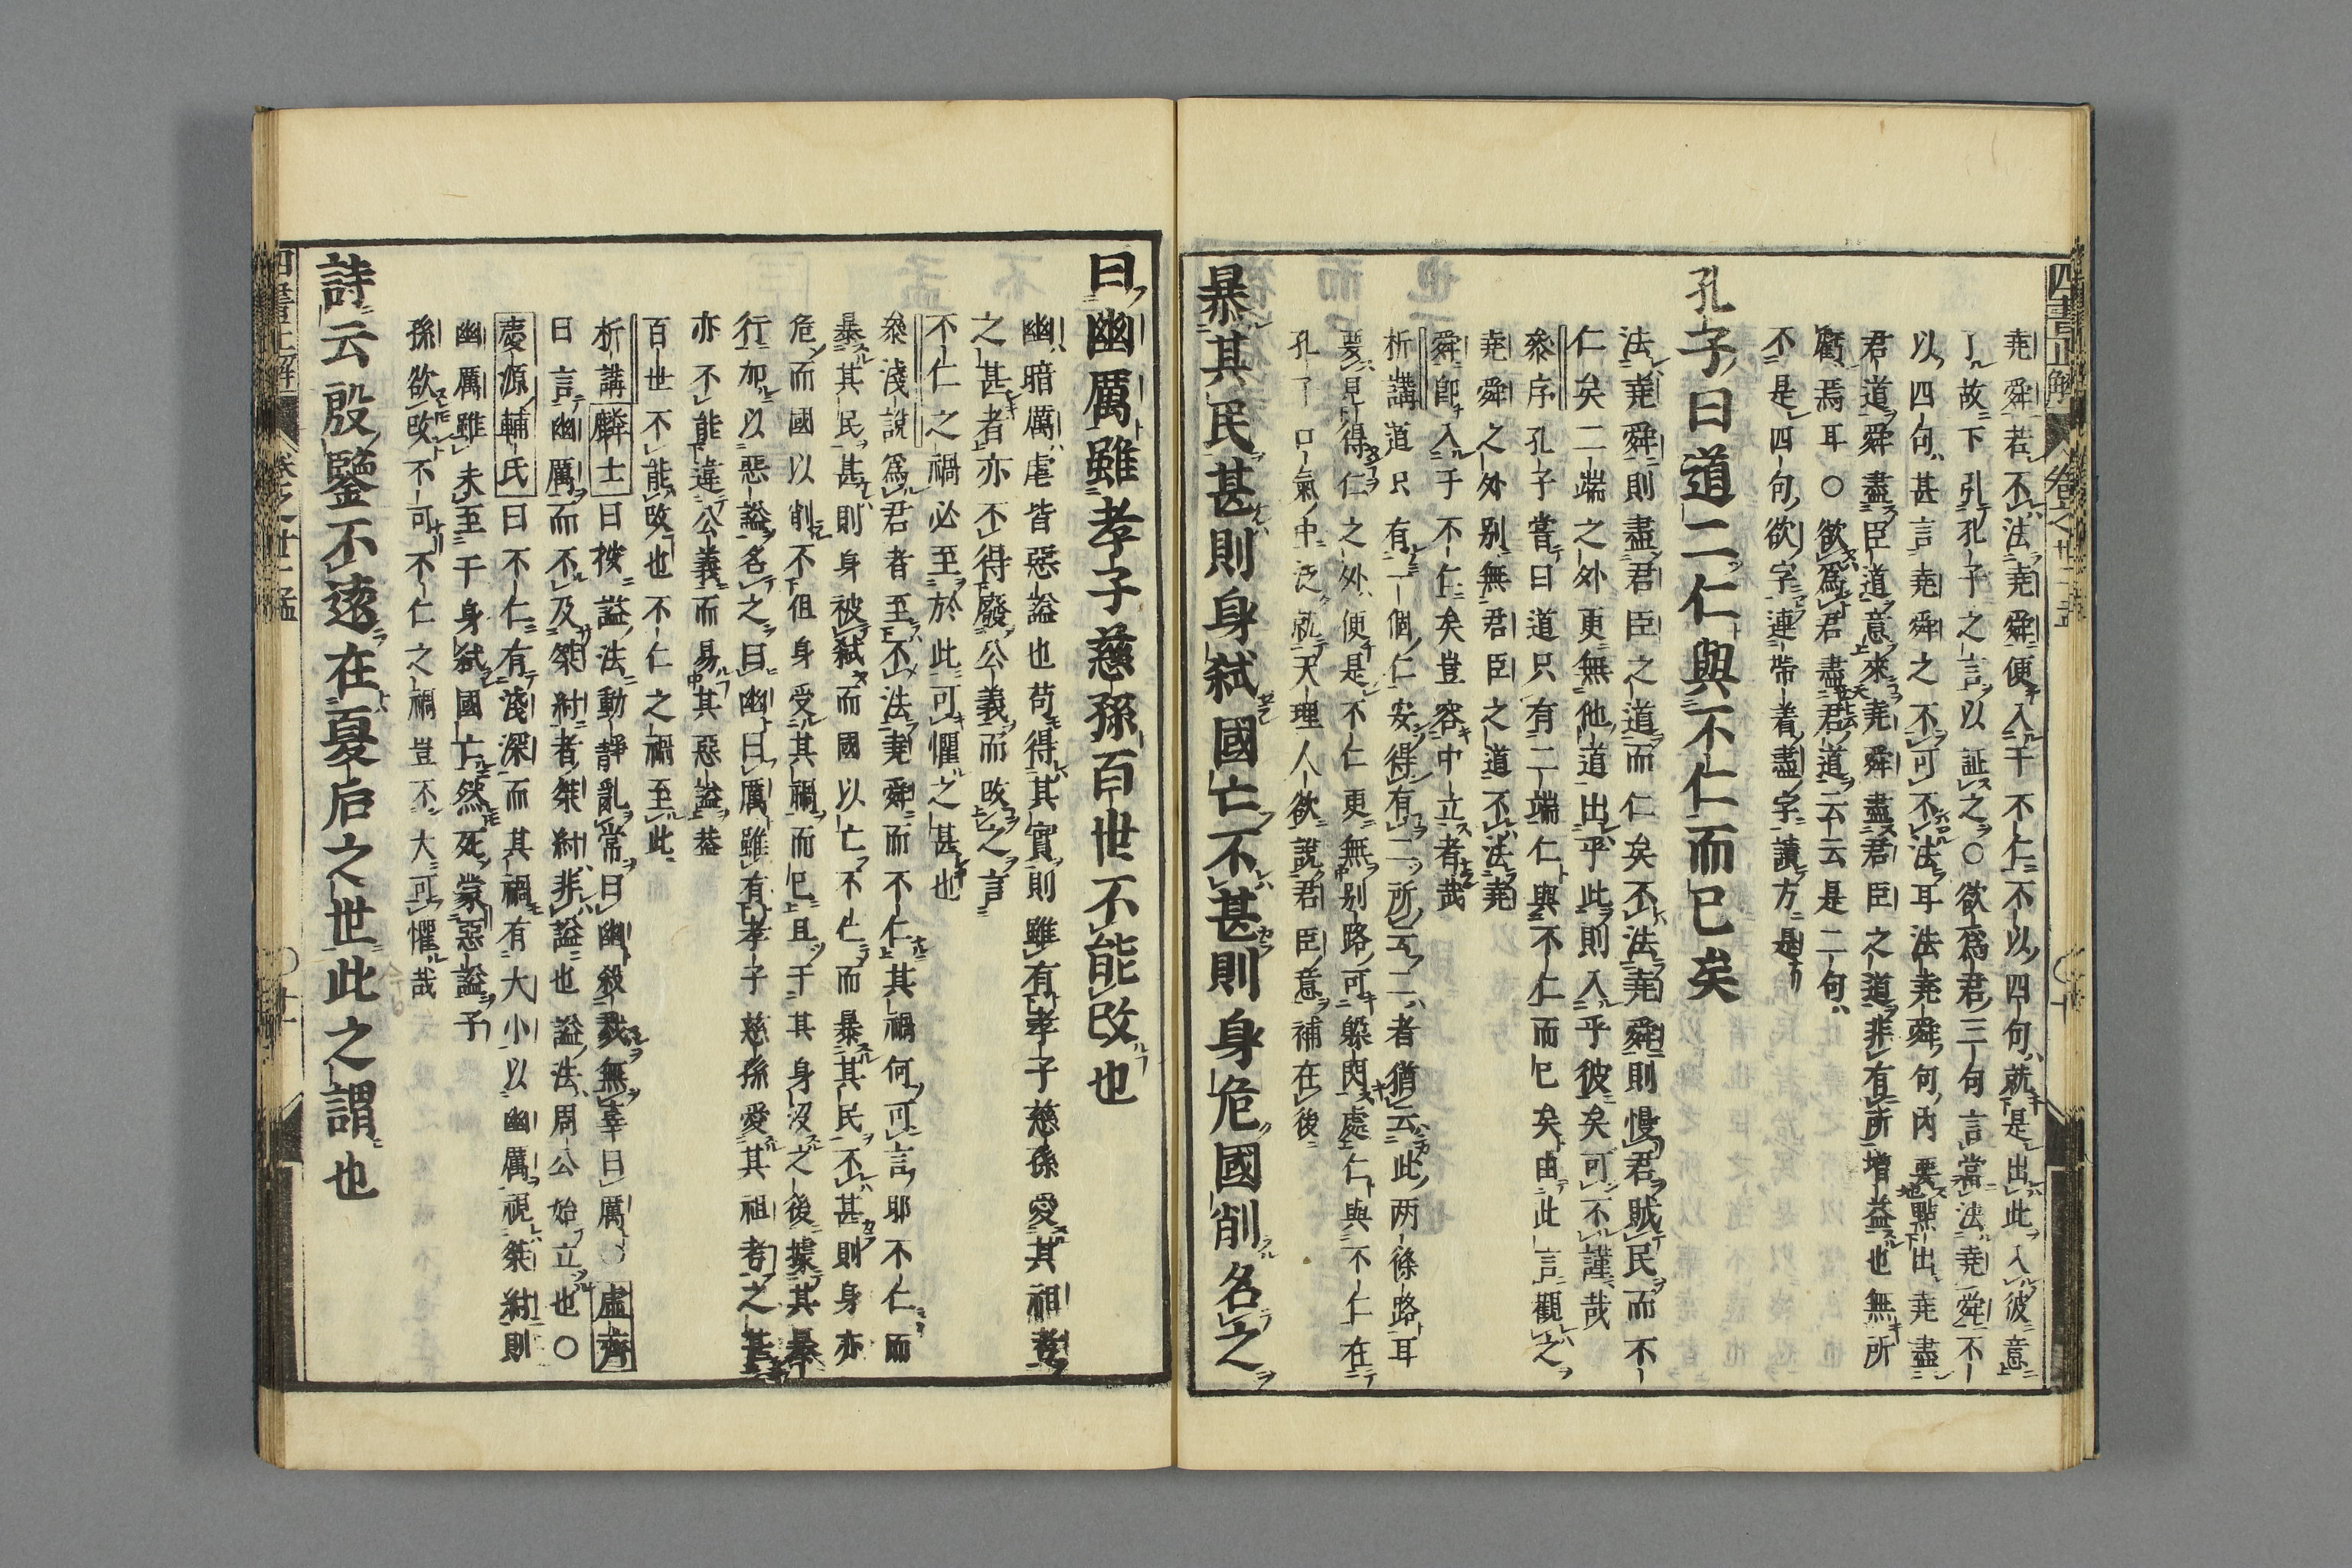 四書正解
卷之廿二
堯舜若不法堯舜便入于不仁不以四句就是出此入彼意
了故下引孔子之言以証之○欲爲君三句言當法堯舜不
以四句甚言堯舜之不可不法耳法堯舜句內要點出堯盡
君道舜盡臣道意來堯舜盡君臣之道非有所增益也無所
虧焉耳○欲爲君盡君道云云是二句
不是四句欲字連帶着盡字讀方是
孔子曰道二仁與不仁而已矣
法堯舜則盡君臣之道而仁矣不法堯舜則慢君賊民而不
仁矣二端之外更無他道出乎此則入乎彼矣可不謹哉
叅序孔子嘗曰道只有二端仁與不仁而已矣由此言觀之
堯舜之外別無君臣之道不法堯
舜卽入于不仁矣豈容中立者哉
析講道只有一個仁安得有二所云二者猶云此兩條路耳
要見得仁之外便是不仁更無別路可躱閃處仁與不仁在
孔子口氣中泛就天理人欲說君臣意補在後
暴其民甚則身弑國亡不甚則身危國削名之
曰幽厲雖孝子慈孫百世不能改也
幽暗厲虐皆惡謚也苟得其實則雖有孝子慈孫愛其祖考
之甚者亦不得廢公義而改之言
不仁之禍必至於此可懼之甚也
叅淺說爲君者至不法堯舜而不仁其禍何可言耶不仁而
暴其民甚則身被弑而國以亡不亡而暴其民不甚則身亦
危而國以削不但身受其禍而已且于其身沒之後據其暴
行加以惡謚名之曰幽曰厲雖有孝子慈孫愛其祖考之甚
亦不能違公義而易其惡謚葢
百世不能改也不仁之禍至此
析講麟士曰按謚法動靜亂常曰幽殺戮無辜曰厲○虛齋
曰言幽厲而不及桀紂者桀紂非謚也謚法周公始立也○
慶源輔氏曰不仁有淺深而其禍有大小以幽厲視桀紂則
幽厲雖未至于身弑國亡然死蒙惡謚子
孫欲改不可不仁之禍豈不大可懼哉
詩云殷鑒不遠在夏后之世此之謂也
四書正解
卷之廿二孟